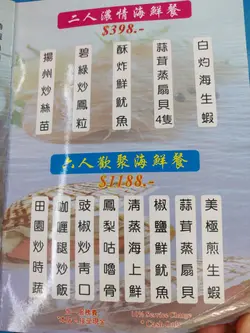 二人濃情海鮮餐
$398.-
白灼海生蝦
蒜茸蒸扇貝4隻
酥炸鮮魷魚
碧綠炒鳳粒
揚州炒絲苗
六人歡聚海鮮餐
$1188.-
美極煎生蝦
蒜茸蒸扇貝
椒鹽鮮魷魚
清蒸海上鮮
鳳梨咕嚕骨
豉椒炒青口
咖喱腿炒飯
田園炒時蔬
10% Service Charge
Cash Only